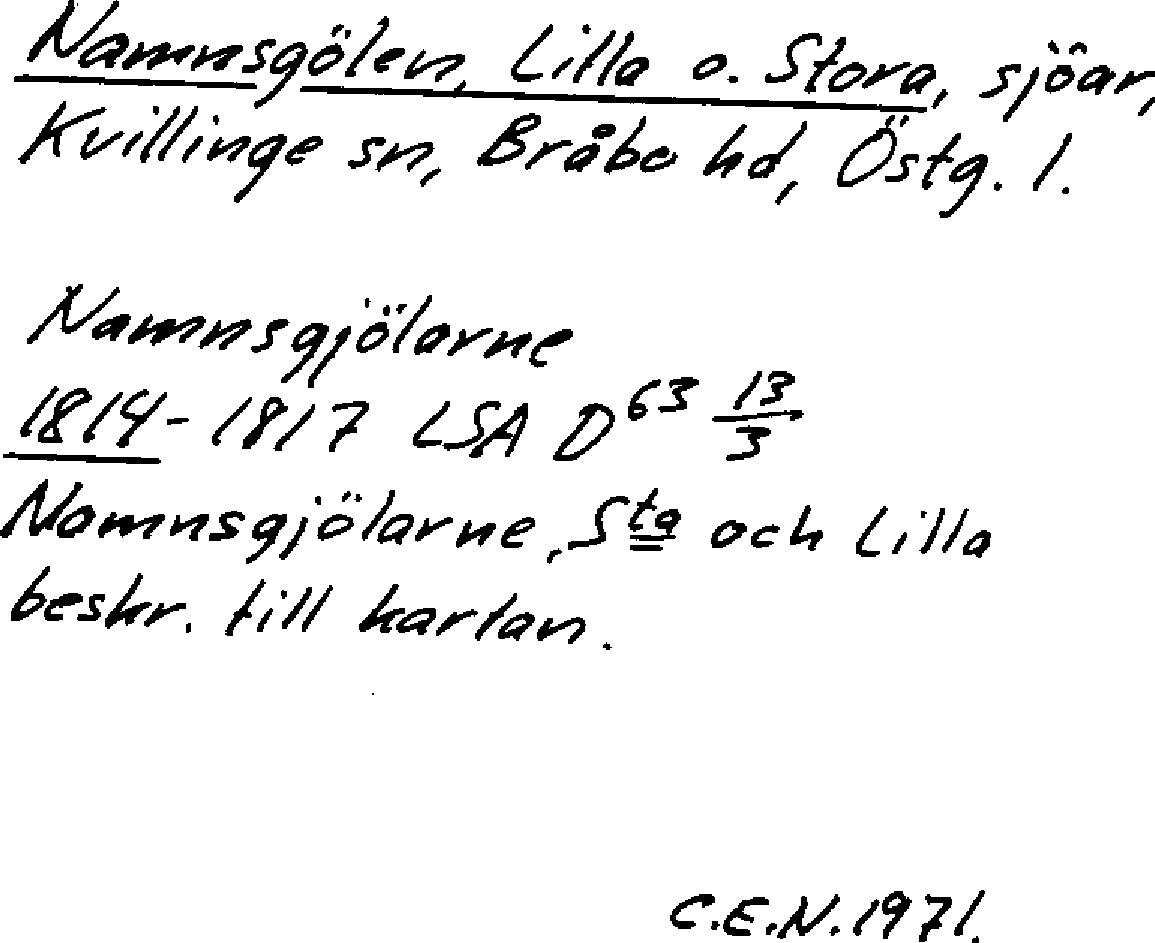 Namnsgölen, Lilla o. Stora, sjöar,
Kvillinge sn, Bråbo hd, Östg. l.
Namnsgjölarne
1814-1817 LSA D 63 13/3
Namnsgjölarne, Sta och Lilla
beskr. till kartan.
C.E.N. 1971.